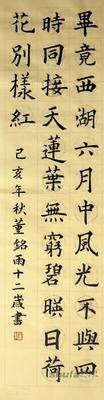 畢竟西湖六月中風光不與四
時同接天蓮葉無窮碧暎日荷
花別樣紅
己亥年秋董銘雨十二歲書